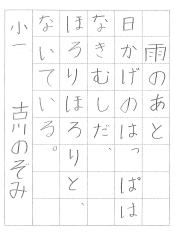 雨のあと
日かげのはっぱは
なきむしだ、
ほろりほろりと、
ないている。
小一 古川のぞみ